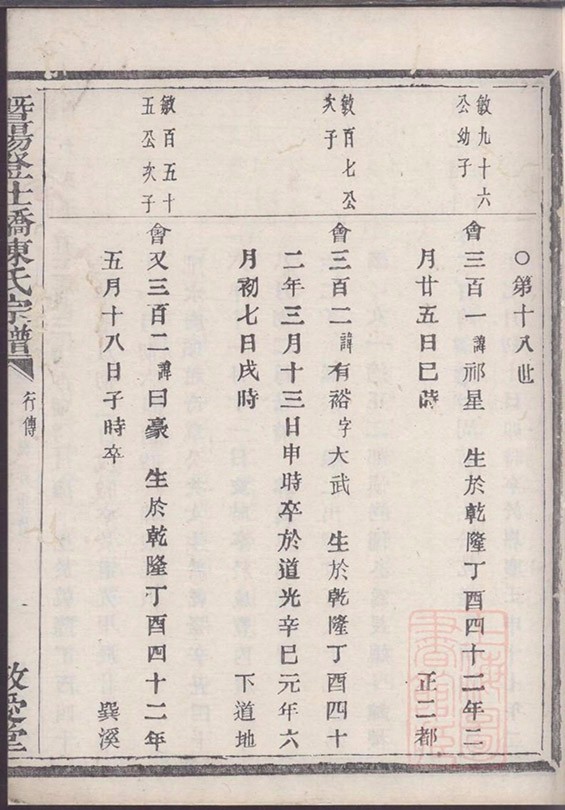 〇第十八世
敏九十六
公幼子
會三百一諱祁星 生於乾隆丁酉四十二年二
月廿五日巳時 正二都
敏百七公
次子
會三百二諱有裕字大武 生於乾隆丁酉四十
二年三月十三日申時卒於道光辛巳元年六
月初七日戌時 下道地
敏百五十
五公次子
會又三百二諱曰豪 生於乾隆丁酉四十二年
五月十八日子時卒 巽溪
暨陽登仕橋陳氏宗譜 行傳